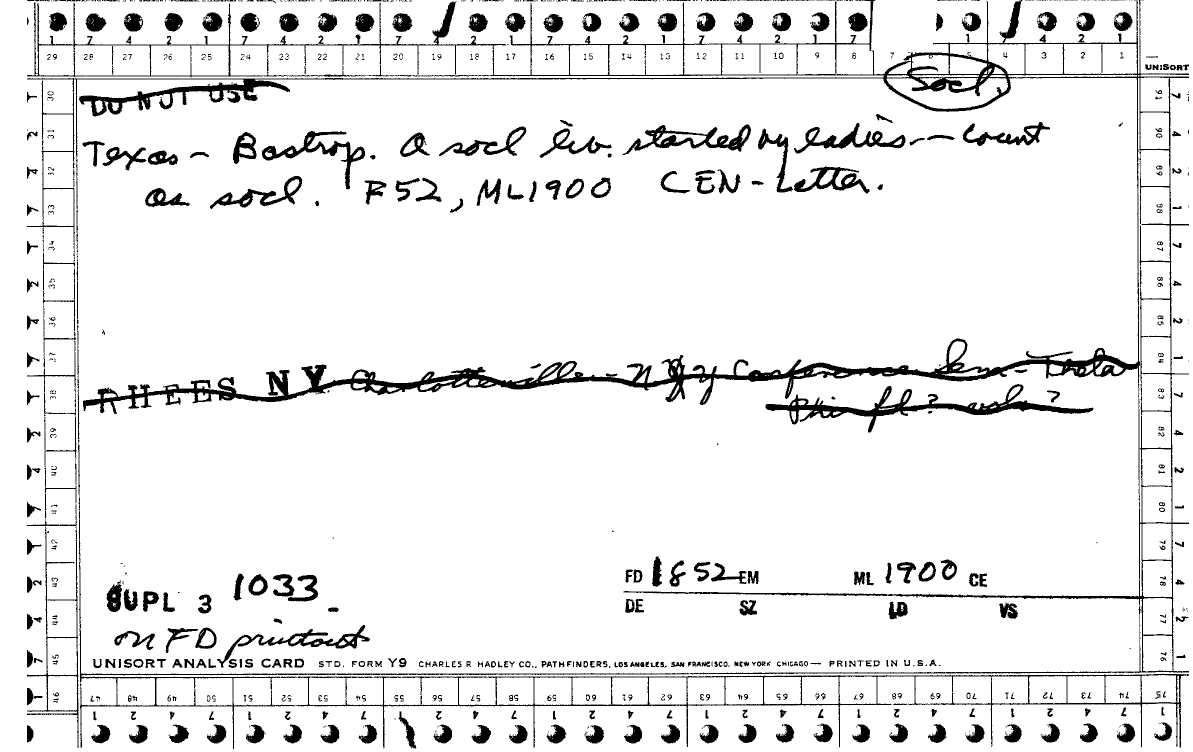 1 7 4 2 1 7 4 2 1 7 4 2 1 7 4 2 1 7 4 2 1 7 1 4 2 1
29 28 27 26 25 24 23 22 21 20 19 18 17 16 15 14 13 12 11 10 9 8 7 5 4 3 2 1
UNISORT
Socl.
DO NOT USE
Texas - Bastrop. A socl lib. started by ladies - count
as socl. F52, ML1900 CEN - Letter.
RHEES NY Charlotteville - NY Conference Sem - Theta
Phi fl? vols?
FD 1852 EM ML 1900 CE
DE SZ LD VS
SUPL 3 1033
on FD printout
UNISORT ANALYSIS CARD STD. FORM Y9 CHARLES R HADLEY CO., PATHFINDERS, LOS ANGELES, SAN FRANCISCO, NEW YORK CHICAGO — PRINTED IN U.S.A.
30 31 32 33 34 35 36 37 38 39 40 41 42 43 44 45 46
91 90 89 88 87 86 85 84 83 82 81 80 79 78 77 76 75
47 48 49 50 51 52 53 54 55 56 57 58 59 60 61 62 63 64 65 66 67 68 69 70 71 72 73 74